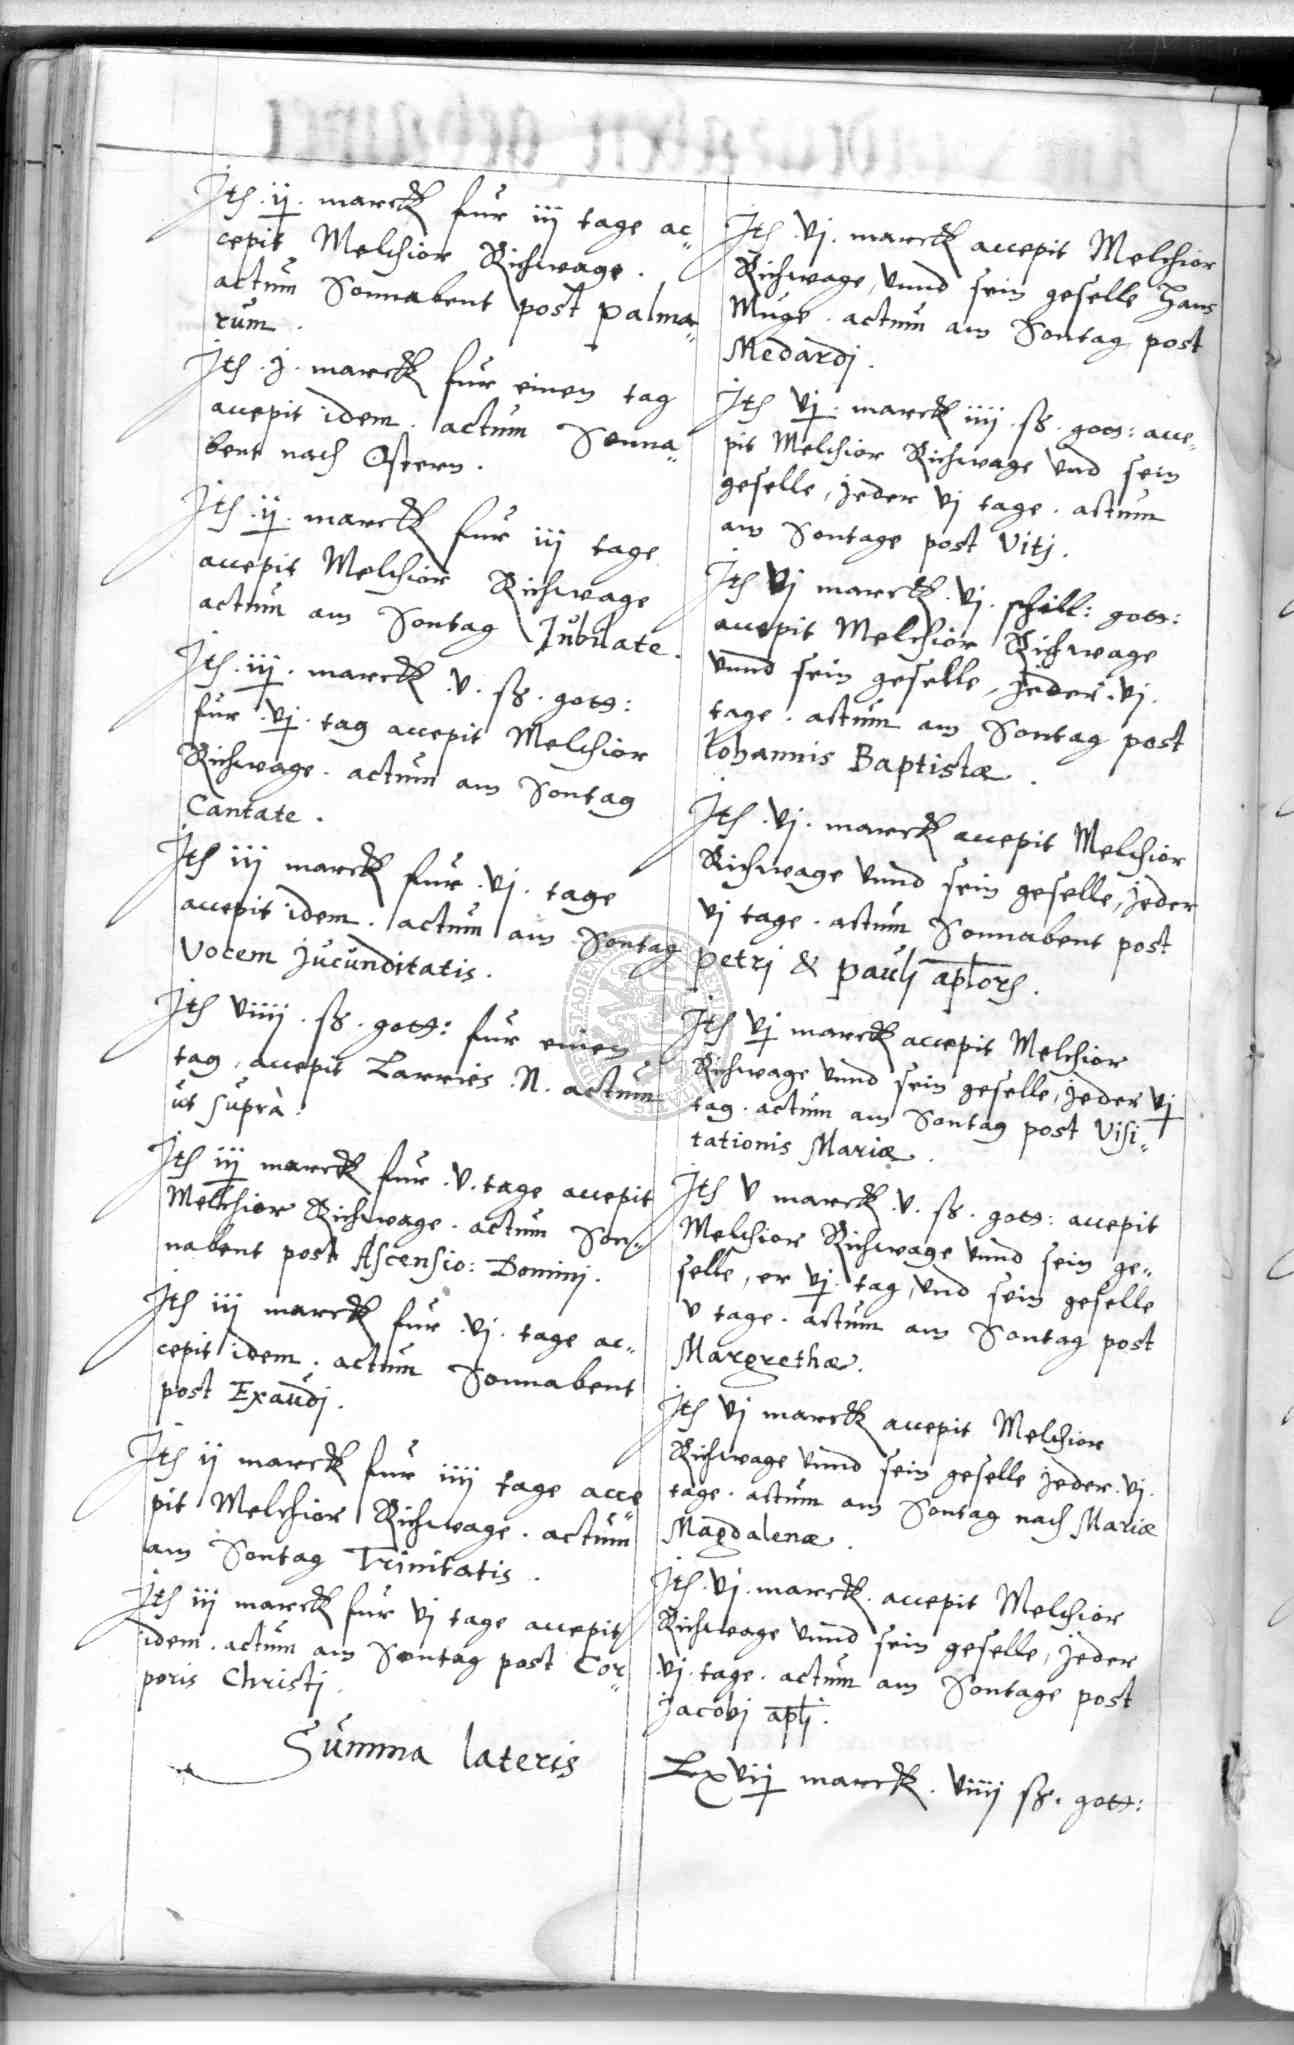 Jtem .ij. marck fur iij tage ac„
cepit Melchior Richwage.
actum Sonnabent post palma„
rum.
Jtem .j. marck fur einen tag
accepit idem. actum Sonna„
bent nach Ostern.
Jtem .ij. marck fur iij tage
accepit Melchior Richwage
actum am Sontag Jubilate.
Jtem .iij. marck .v. ß. gott:
fur .vj. tag accepit Melchior
Richwage. actum am Sontag
Cantate.
Jtem iij marck fur .vj. tage
accepit idem. actum am Sontag
Vocem jucunditatis.
Jtem viiij. ß. gott: fur einen
tag, accepit Larries .N. actum
ut suprà.
Jtem iij marck fur .v. tage accepit
Melchior Richwage. actum Son„
nabent post Ascensio: Dominj.
Jtem iij marck fur .vj. tage ac„
cepit idem. actum Sonnabent
post Exaudj.
Jtem ij marck fur iiij tage acce„
pit Melchior Richwage. actum
am Sontag Trinitatis.
Jtem iij marck fur vj tage accepit
idem. actum am Sontag post Cor„
poris Christj.
Summa lateris
Jtem .vj. marck accepit Melchior
Richwage, vnnd sein geselle Hans
Muge. actum am Sontag post
Medardj.
Jtem vj. marck iiij. ß. gott: acce„
pit Melchior Richwage vnd sein
geselle, jeder vj tage. actum
am Sontage post Vitj.
Jtem vj marck .vj. schill: gott:
accepit Melchior Richwage
vnnd sein geselle, jeder .vj.
tage. actum am Sontag post
Iohannis Baptistæ.
Jtem .vj. marck accepit Melchior
Richwage vnnd sein geselle, jeder
vj tage. actum Sonnabent post
petrj & paulj aplor.
Jtem vj marck accepit Melchior
Richwage vnnd sein geselle, jeder vj
tag. actum am Sontag post Visi„
tationis Mariæ.
Jtem v marck .v. ß. gott: accepit
Melchior Richwage vnnd sein ge„
selle, er vj. tag, vnd sein geselle
v tage. actum am Sontag post
Margrethæ.
Jtem vj marck accepit Melchior
Richwage vnnd sein geselle jeder .vj.
tage. actum am Sontag nach Mariæ
Magdalenæ.
Jtem .vj. marck. accepit Melchior
Richwage vnnd sein geselle, jeder
.vj. tage. actum am Sontage post
jacobj aplj.
Lxvij marck. viiij ß. gott: